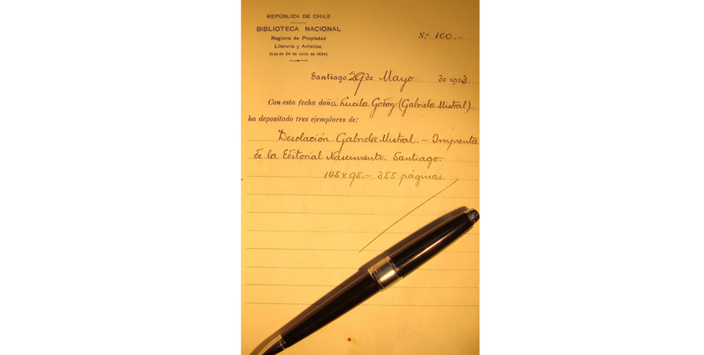 REPÚBLICA DE CHILE
BIBLIOTECA NACIONAL
Registro de Propiedad
Literaria y Artística.
(Ley de 24 de Julio de 1834)
N.º 100.-
Santiago 29 de Mayo de 1923.
Con esta fecha doña Lucila Godoy (Gabriela Mistral)
ha depositado tres ejemplares de:
Desolación. Gabriela Mistral. - Imprenta
de la Editorial Nascimento. Santiago.
145 x 95. - 355 páginas